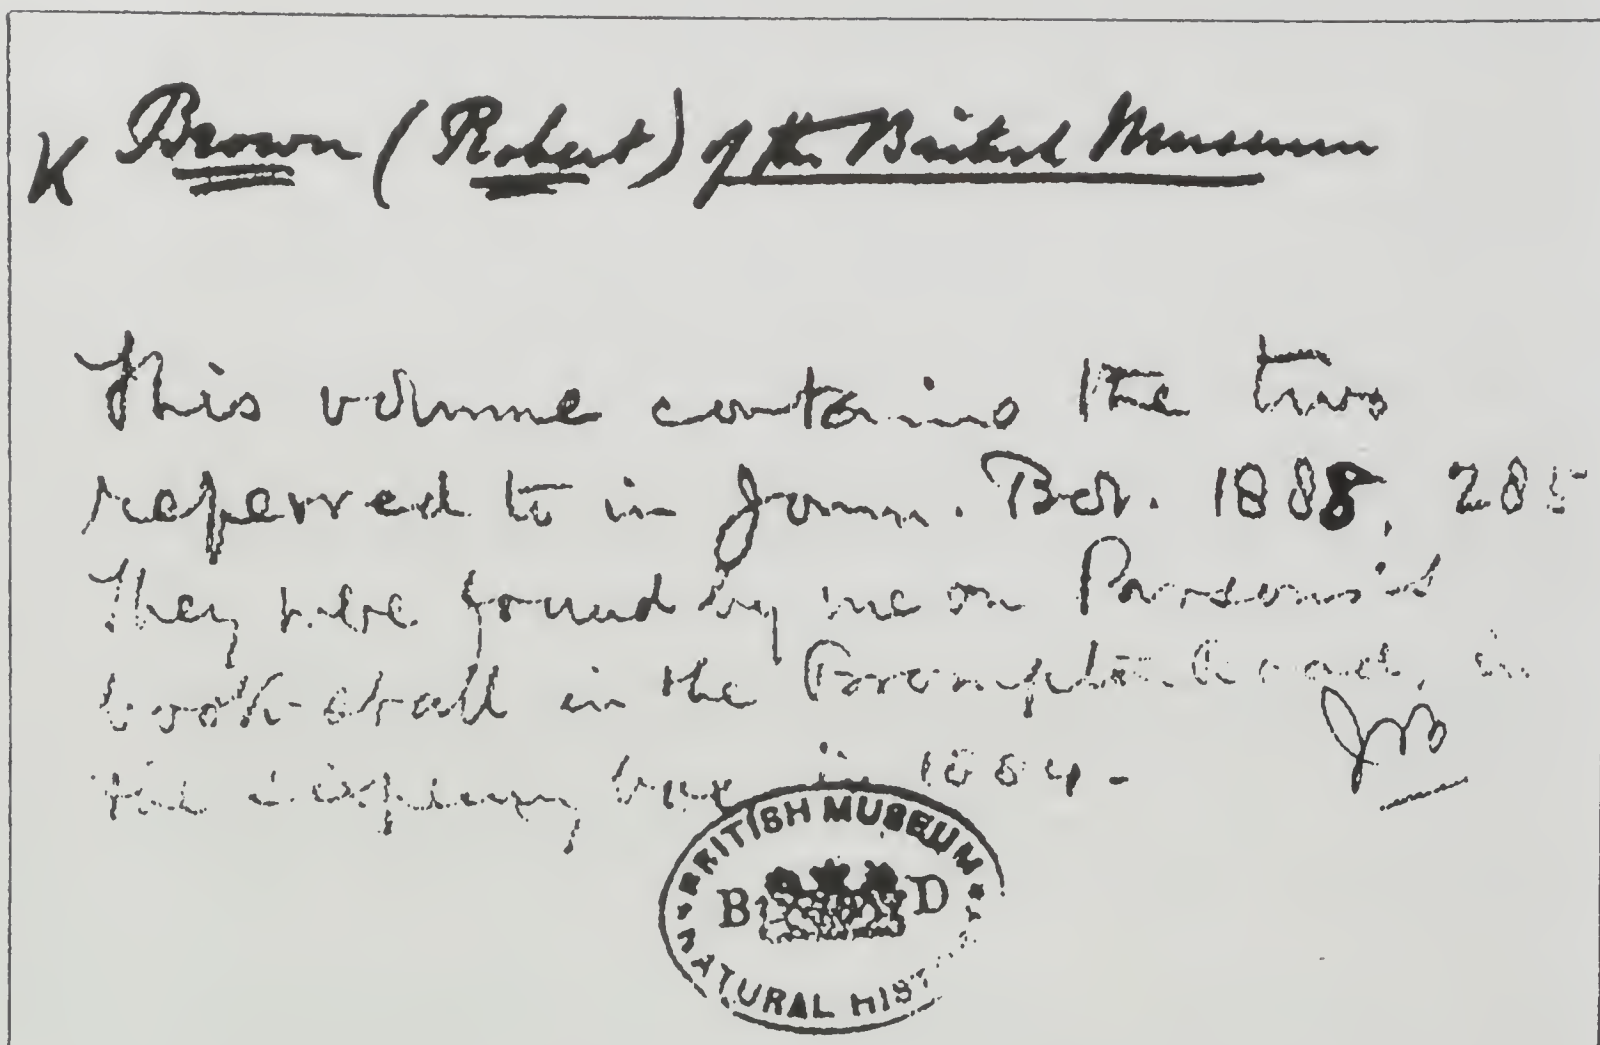 K Brown (Robert) of the British Museum
This volume contains the two
referred to in Journ. Bot. 1888, 285
They were found by me on Parsons's
book-stall in the Brompton Road, in
the twopenny box in 1884 -
JB
BRITISH MUSEUM
B D
NATURAL HIST